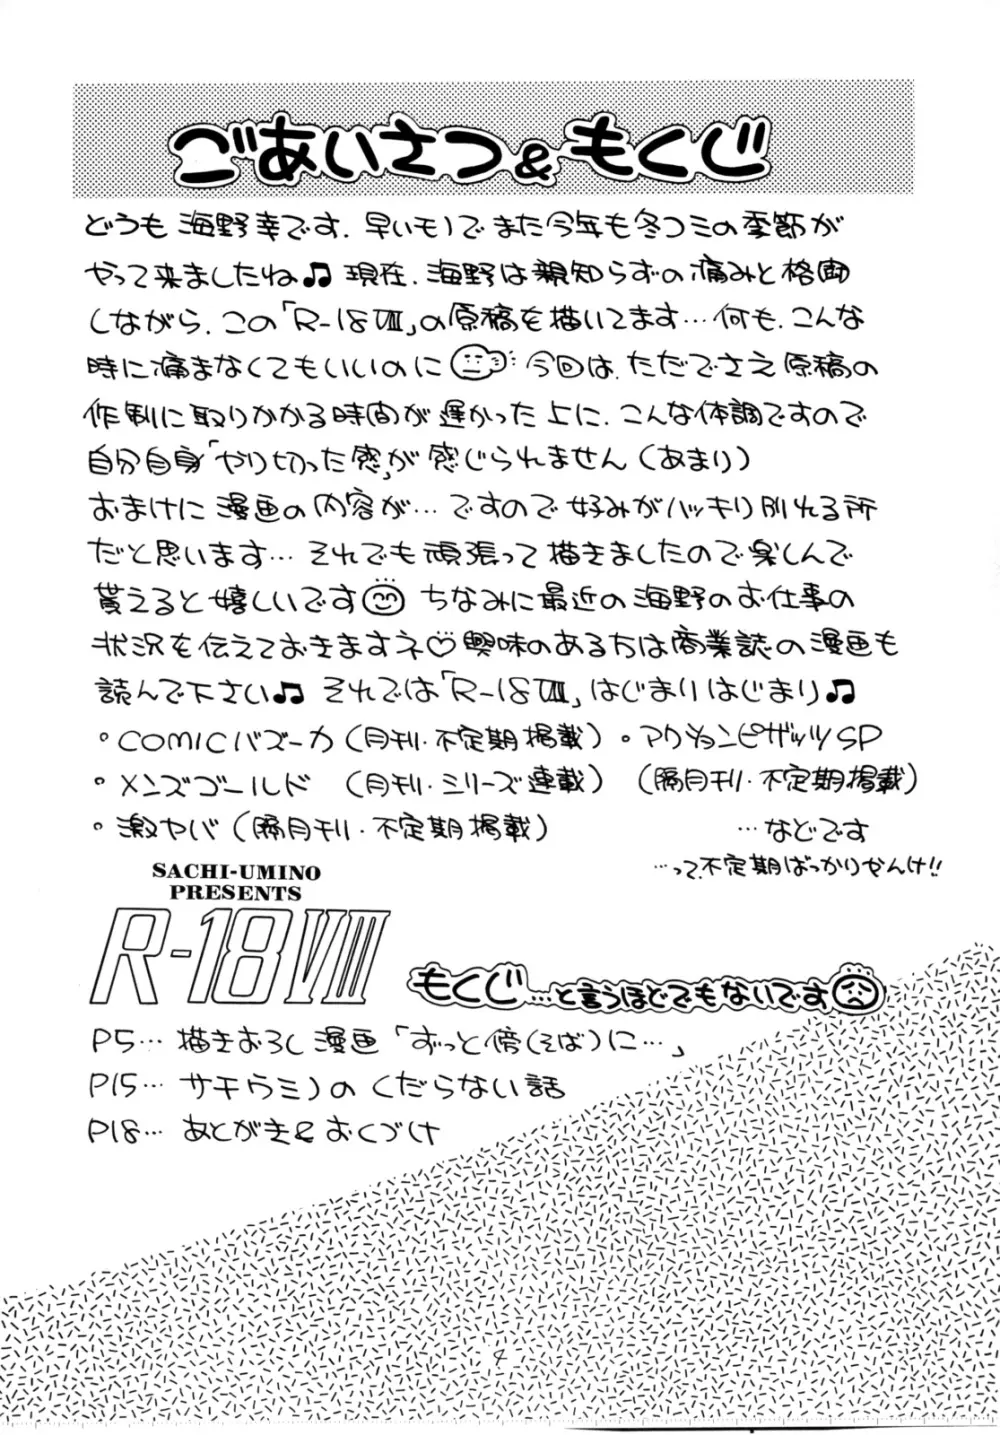 ごあいさつ&もくじ
どうも海野幸です.早いモノでまた今年も冬コミの季節が
やって来ましたね♫現在.海野は親知らずの痛みと格闘
しながら.この「R-18Ⅷ」の原稿を描いてます…何も.こんな
時に痛まなくてもいいのに 今回は.ただでさえ原稿の
作制に取りかかる時間が遅かった上に.こんな体調ですので
自分自身「やり切った感」が感じられません(あまり)
おまけに漫画の内容が…ですので好みがハッキリ別れる所
だと思います…それでも頑張って描きましたので楽しんで
貰えると嬉しいです ちなみに最近の海野のお仕事の
状況を伝えておきますネ♡興味のある方は商業誌の漫画も
読んで下さい♫それでは「R-18Ⅷ」はじまりはじまり♫
・COMICバズーカ(月刊・不定期掲載)・アクションピザッツSP
・メンズゴールド (月刊・シリーズ連載) (隔月刊・不定期掲載)
・激ヤバ(隔月刊・不定期掲載) …などです
…って.不定期ばっかりやんけ!!
SACHI-UMINO
PRESENTS
R-18Ⅷ
もくじ…と言うほどでもないです
P5…描きおろし漫画「ずっと傍(そば)に…」
P15…サチウミノのくだらない話
P18…あとがき&おくづけ
4